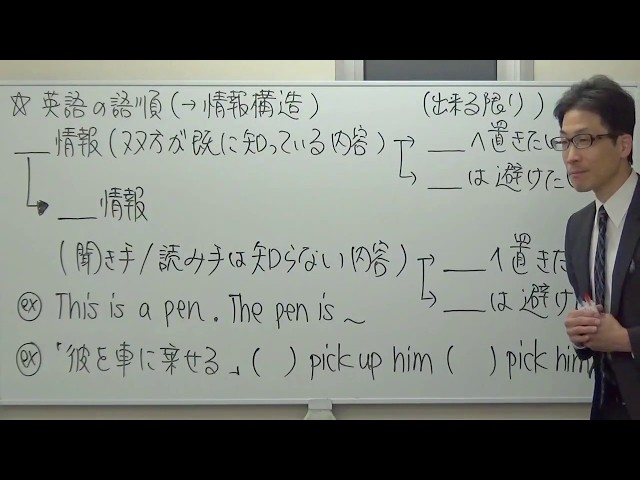 ☆ 英語の語順 (→情報構造) (出来る限り)
__情報 (双方が既に知っている内容) → __へ置きたい
→ __は避けたい
→ __情報
(聞き手/読み手は知らない内容) → __へ置きた
→ __は避け
ex This is a pen. The pen is ~
ex 「彼を車に乗せる」 ( ) pick up him ( ) pick him